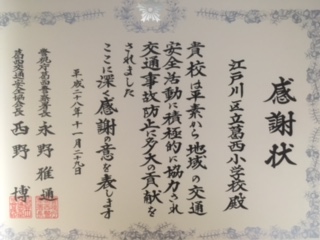 感謝状
江戸川区立葛西小学校殿
貴校は平素から地域の交通
安全活動に積極的に協力され
交通事故防止に多大の貢献を
されました
ここに深く感謝の意を表します
平成二十八年十一月二十九日
警視庁葛西警察署長 永野雅通
葛西交通安全協会長 西野博